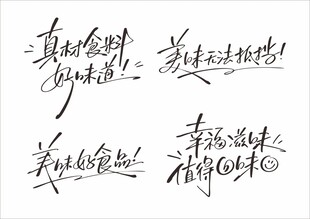 真材食料
好味道!
美味无法抵挡!
美味好食品!
幸福滋味
值得回味